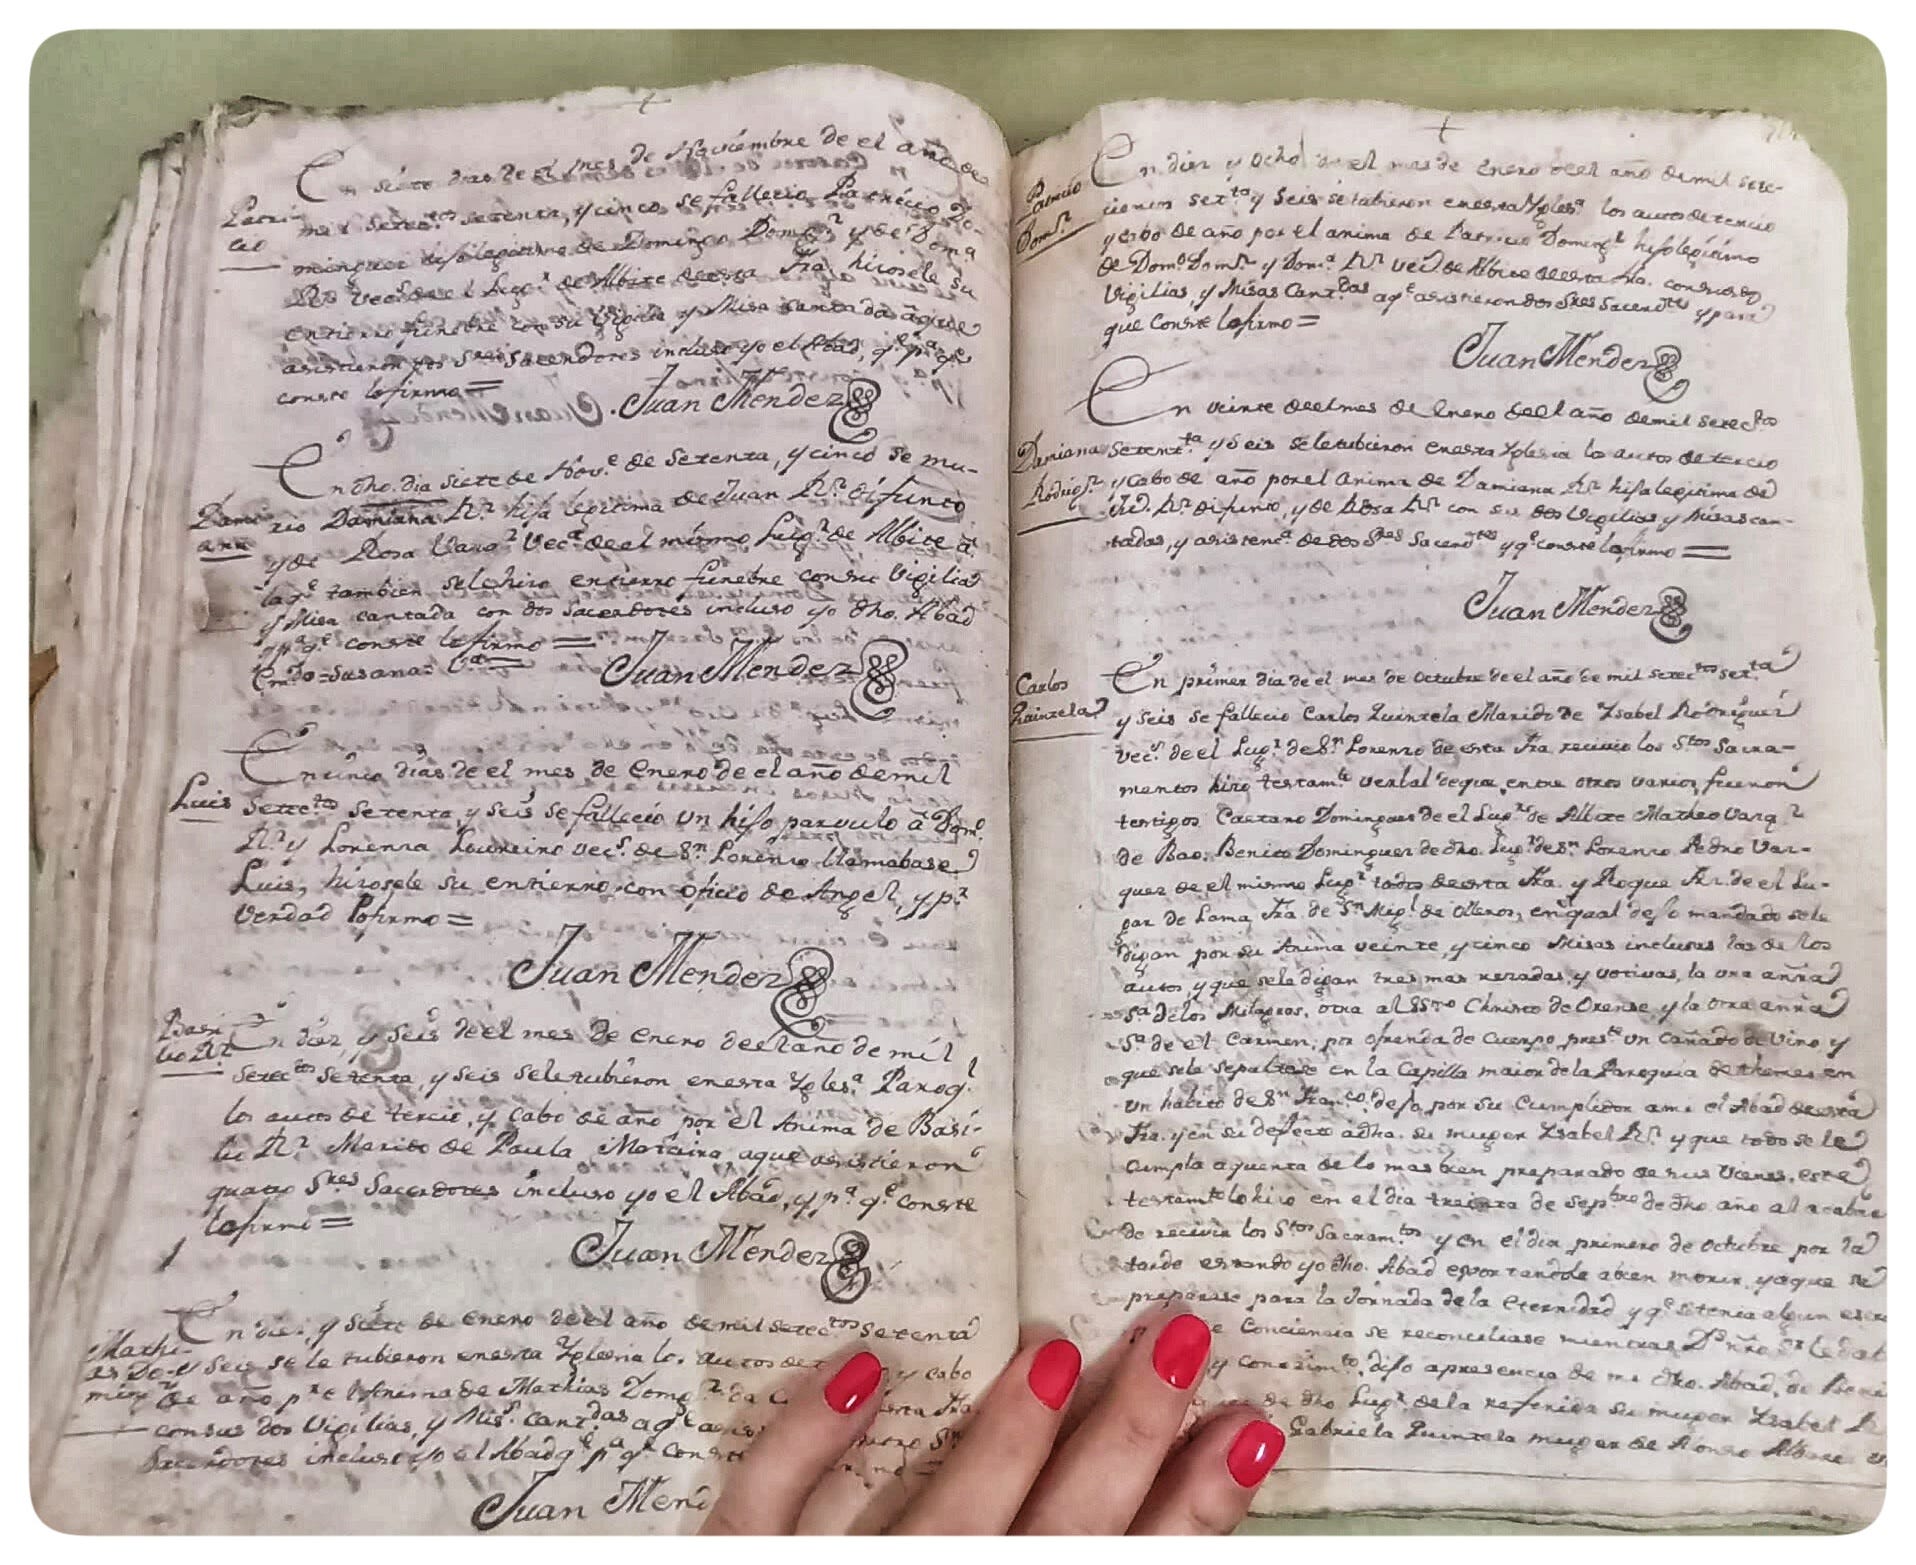 En siete dias de el mes de Noviembre de el año de
Patri-
cio
mil setec.tos setenta, y cinco se fallecio Patricio Do-
minguez hijo legitimo de Domingo Dom.z y de Dom.a
Rz. vec.s de el Lug.r de Albite de esta fra. hizosele su
entierro funebre con su Vigilia y Misa cantada â que
asistieron dos S.res Sacerdotes incluso yo el Abad, q.e p.a q.e
conste lo firmo =
Juan Mendez
En dho. dia siete de Nov.e de setenta, y cinco se mu-
Dami
ana
rio Damiana Rz. hija legitima de Juan Rz. difunto
y de Rosa Varq.z Vec.a de el mismo Lug.r de Albite â
la q.e tambien se le hizo entierro funebre con su Vigilia
y Misa cantada con dos sacerdotes incluso yo dho. Abad
y p.a q.e conste lo firmo =
Em.do = Susana =
Juan Mendez
En cinco dias de el mes de Enero de el año de mil
Luis
setec.tos setenta, y seis se fallecio un hijo parvulo â Dom.o
Rz. y Lorenza Loureiro vec.s de S.n Lorenzo llamabase
Luis, hizosele su entierro con oficio de Angel, y p.r
verdad lo firmo =
Juan Mendez
Basi
lio Rz.
En diez, y seis de el mes de Enero de el año de mil
setec.tos setenta, y seis se le tubieron en esta Ygles.a Paroq.l
los autos de tercio, y Cabo de año por el Anima de Basi-
lio Rz. Marido de Paula Moreira, a que asistieron
quatro S.res Sacerdotes incluso yo el Abad, y p.a q.e conste
lo firmo =
Juan Mendez
En diez y siete de Enero de el año de mil setec.tos setenta
Mathi-
as Do-
ming.z
y seis se le tubieron en esta Yglesia los autos de y cabo
de año p.r el Anima de Mathias Dom.z
con sus dos Vigilias, y Mis.s Cant.das a q.e
Sacerdotes incluso yo el Abad q.e p.a q.e conste
Juan Mend
En diez y ocho de el mes de Enero de el año de mil sete-
Patricio
Dom.z
cientos set.ta y seis se tubieron en esta Ygles.a los autos de tercio
y cabo de año por el anima de Patricio Doming.z hijo legitimo
de Dom.o Dom.z y Dom.a Rz. vec.s de Albite de esta fra. con sus dos
Vigilias, y Misas Cant.das a q.e asistieron dos S.res Sacerd.tes y para
que conste lo firmo =
Juan Mendez
En veinte de el mes de Enero de el año de mil setec.tos
Damiana
Rodrig.z
Setent.ta y seis se le tubieron en esta Yglesia los autos de tercio
y Cabo de año por el Anima de Damiana Rz. hija legitima de
Ju.o Rz. difunto, y de Rosa Rz. con sus dos Vigilias y Misas can-
tadas, y asistenc.a de dos S.res Sacerd.tes y q.e conste lo firmo =
Juan Mendez
Carlos
Quintela
En primer dia de el mes de Octubre de el año de mil setec.tos set.ta
y seis se fallecio Carlos Quintela Marido de Ysabel Rodriguez
vec.s de el Lug.r de S.n Lorenzo de esta fra. recivio los S.tos Sacra-
mentos hizo testam.to verbal de que entre otros varios fueron
testigos Caetano Dominguez de el Lug.r de Albite Matheo Varq.z
de Bao, Benito Dominguez de dho. Lug.r de S.n Lorenzo Pedro Var-
quez de el mismo Lug.r todos de esta fra. y Roque Frz. de el Lu-
gar de Lama fra. de S.n Mig.l de Olleros, en qual dejo mandado se le
digan por su Anima veinte, y cinco Misas inclusas las de los
autos, y que se le digan tres mas rezadas, y votivas, la una a ñra
S.a de los Milagros, otra al SS.mo Christo de Orense, y la otra a ñra
S.a de el Carmen, por ofrenda de Cuerpo pres.te un Cañado de Vino, y
que se le sepultase en la Capilla maior de la Paroquia de themes en
un habito de S.n Fran.co dejo por su Cumplidor a mi el Abad de esta
fra. y en su defecto a dha. su muger Ysabel Rz. y que todo se le
cumpla a quenta de lo mas bien preparado de sus vienes, este
testam.to lo hizo en el dia treinta de Sep.bre de dho. año al acabar
de recivir los S.tos Sacram.tos y en el dia primero de Octubre por la
tarde estando yo dho. Abad exortandole a bien morir, y a que se
preparase para la Jornada de la Eternidad y q.e si tenia algun escru
Conciencia se reconciliase mientras D.s ñro S.r le dab
y conozim.to, dijo a presencia de mi dho. Abad, de Beni
de dho Lug.r de la referida su muger Ysabel R
Gabriela Quintela muger de Alonso Albarez